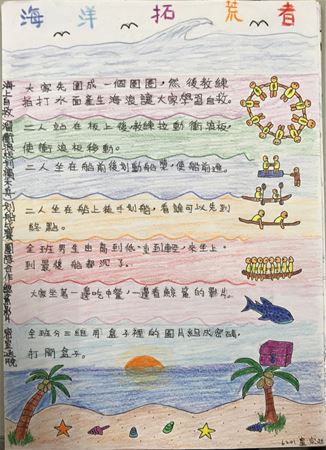 海洋拓荒者
大家先圍成一個圈圈，然後教練
拍打水面產生海浪讓大家學習自救。
二人站在板上後，教練拉動衝浪板，
使衝浪板移動。
二人坐在船前後划動船槳，使船前進。
二人坐在船上徒手划船，看誰可以先到
終點。
全班男生由高到低，重到輕，來坐上，
到最後船都沉了。
大家坐著一邊吃中餐，一邊看鯨鯊的影片。
全班分三組用盒子裡的圖片組成密碼，
打開盒子。
海上自救